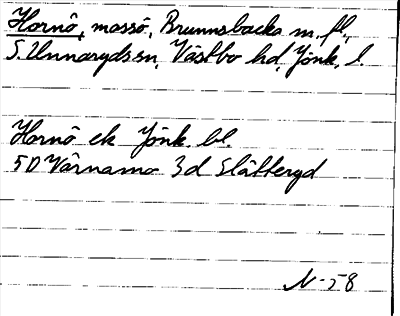 Hornö, mossö, Brunnsbacka m. fl.,
S. Unnaryds sn, Västbo hd, Jönk. l.
Hornö ek Jönk. bl.
5D Värnamo 3d Slätteryd
N-58